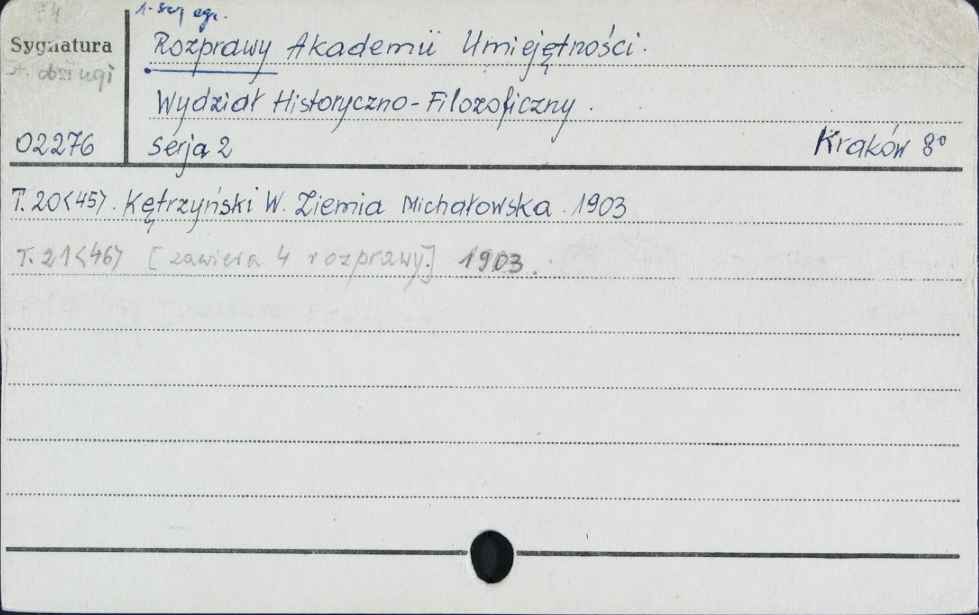 1-szy egz.
Sygnatura
Rozprawy Akademii Umiejętności.
Wydział Historyczno-Filozoficzny.
02276
Serja 2
Kraków 8°
T. 20<45>. Kętrzyński W. Ziemia Michałowska. 1903
T. 21<46> [zawiera 4 rozprawy.] 1903.